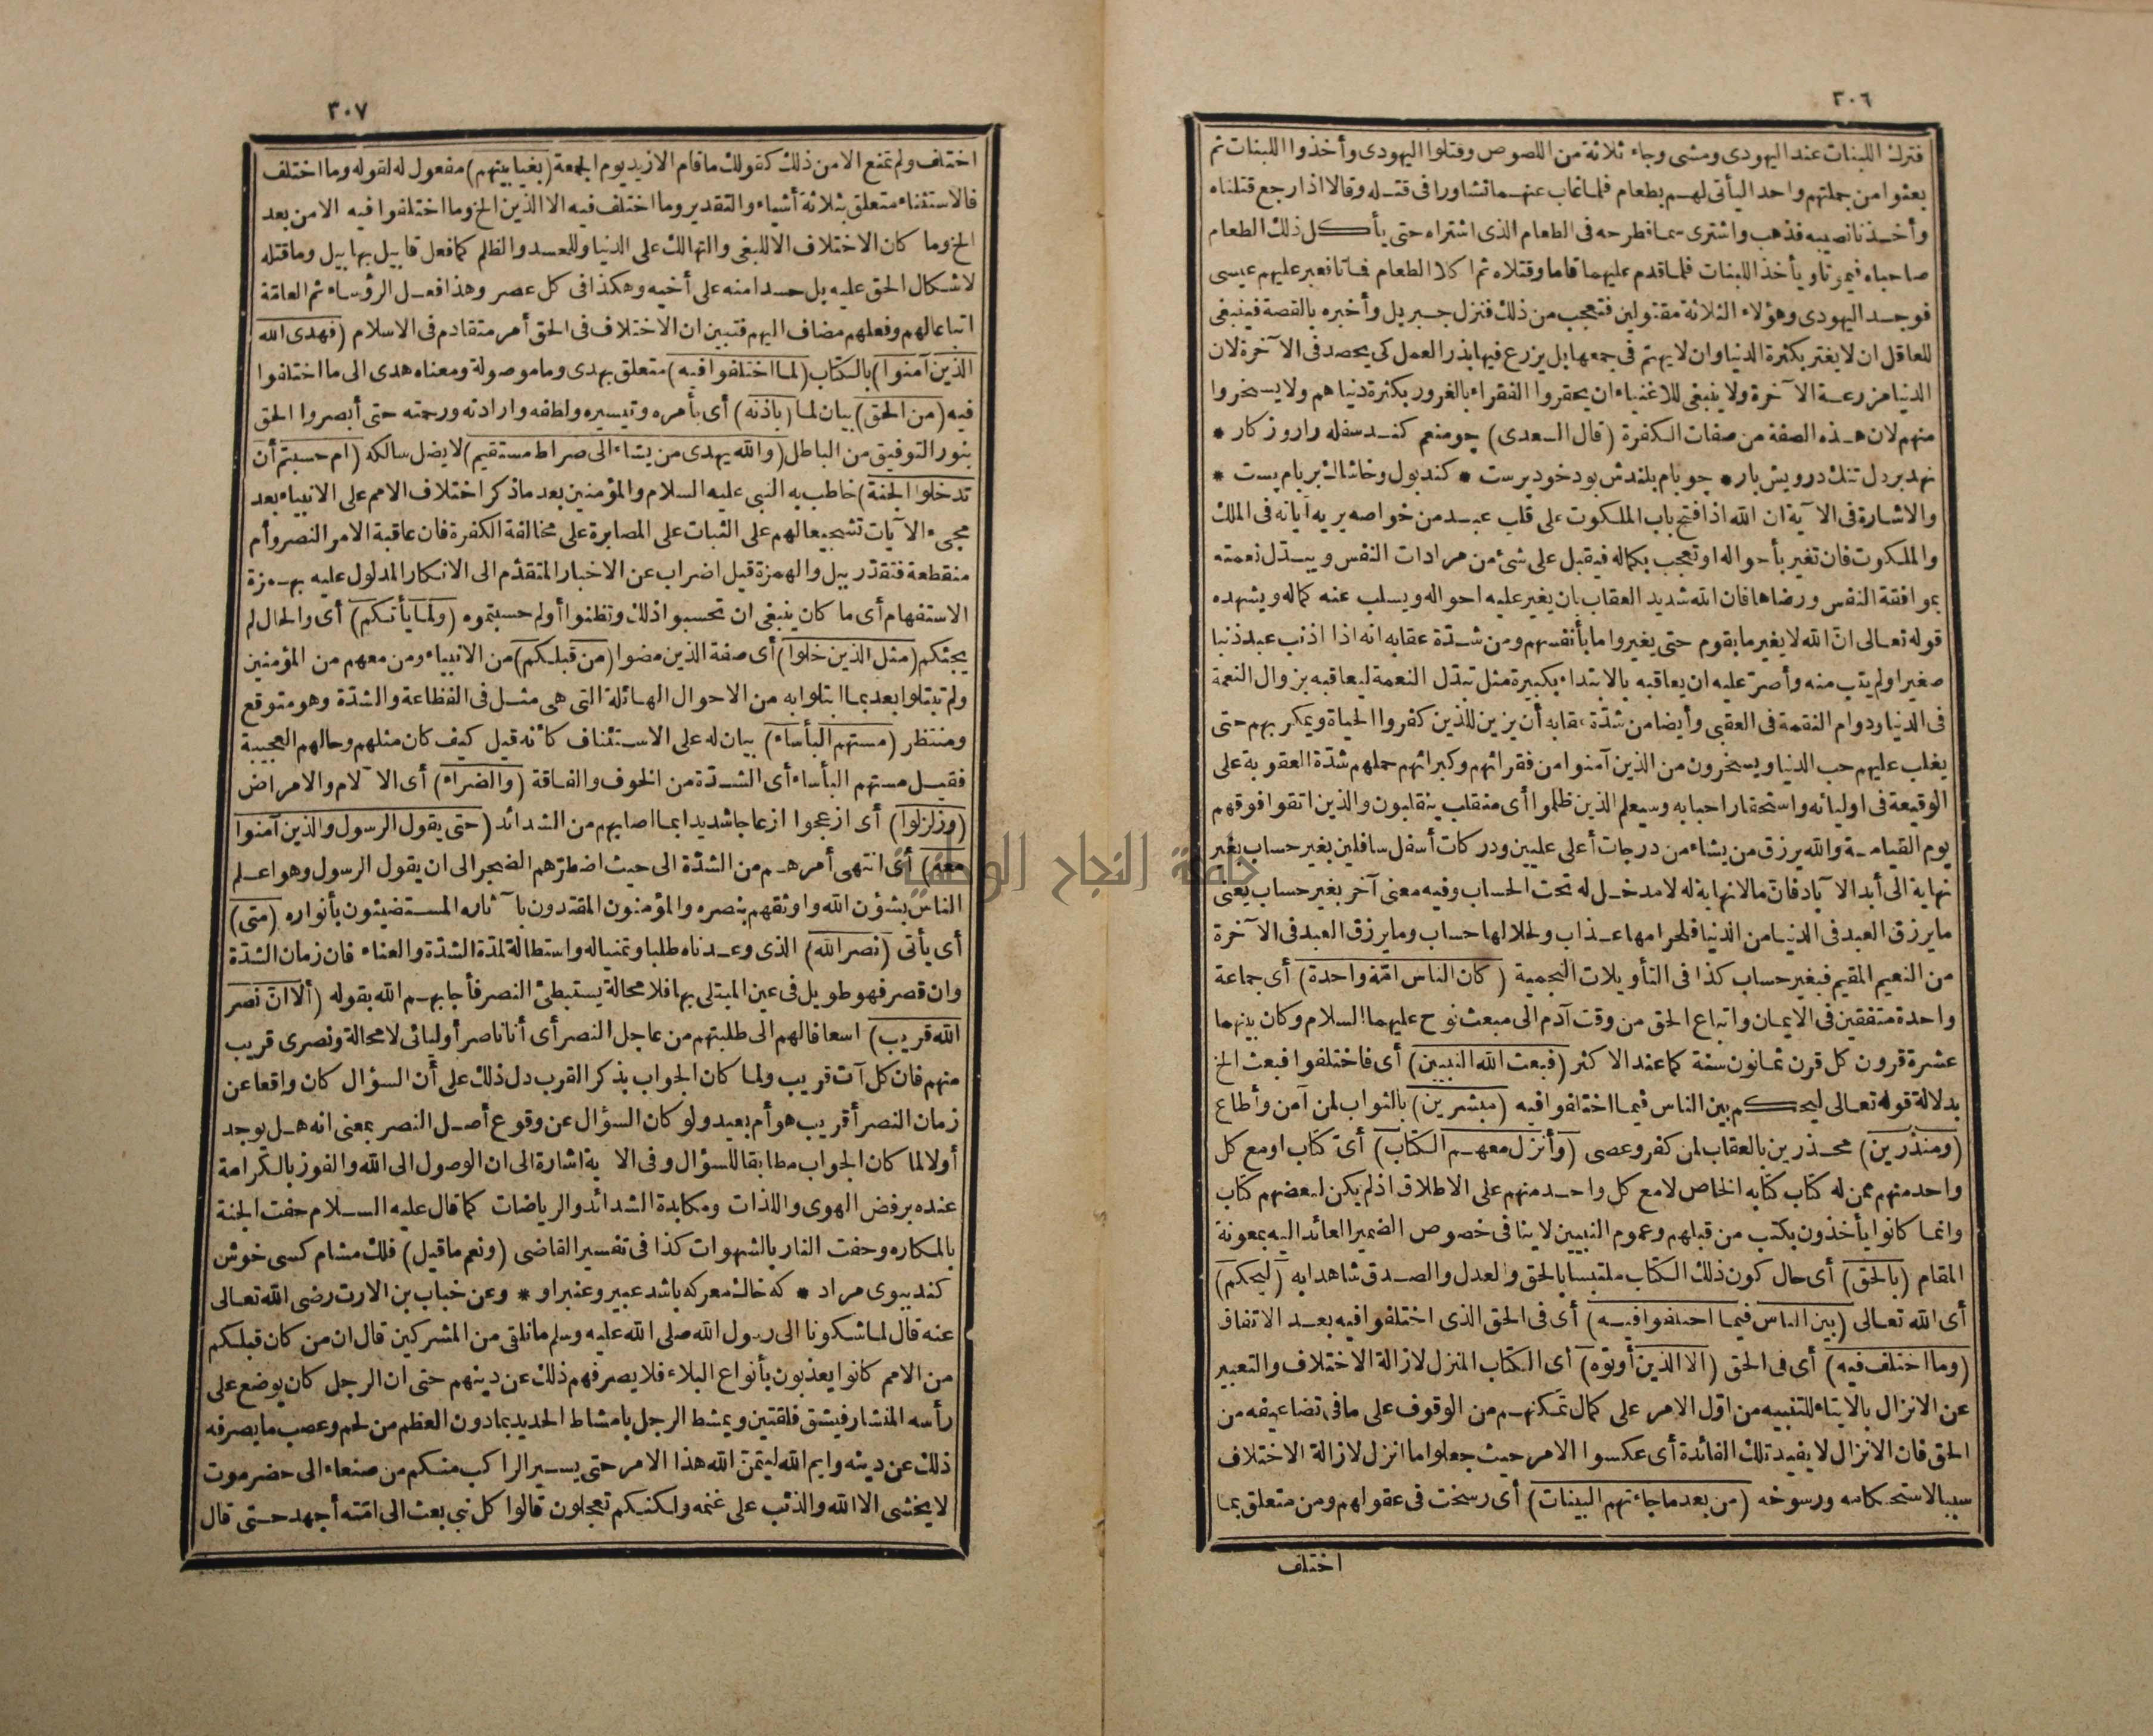 ٣٠٦
فترك اللبنات عند اليهودى ومشى وجاء ثلاثة من اللصوص وقتلوا اليهودى وأخذوا اللبنات ثم
بعثوا من جملتهم واحد اليأتى لهم بطعام فلما غاب عنهما تشاورا فى قتله وقالا اذا رجع قتلناه
وأخذنا نصيبه فذهب واشترى سما فطرحه فى الطعام الذى اشتراه حتى يأكل ذلك الطعام
صاحباه فيموتا ويأخذ اللبنات فلما قدم عليهما قاما وقتلاه ثم اكلا الطعام فماتا فعبر عليهم عيسى
فوجد اليهودى وهؤلاء الثلاثة مقتولين فتعجب من ذلك فنزل جبريل وأخبره بالقصة فينبغى
للعاقل ان لا يغتر بكثرة الدنيا وان لا يهتم فى جمعها بل يزرع فيها بذر العمل كى يحصد فى الآخرة لان
الدنيا مزرعة الآخرة ولا ينبغى للاغنياء ان يحقروا الفقراء بالغرور بكثرة دنياهم ولا يسخروا
منهم لان هذه الصفة من صفات الكفرة (قال السعدى) چو منعم كند سفله را روزكار *
نهد بر دل تنك درويش بار * چو بام بلندش بود خود پرست * كند بول وخاشاك بر بام پست *
والاشارة فى الآية ان الله اذا فتح باب الملكوت على قلب عبد من خواصه يريه آياته فى الملك
والملكوت فان تغير بأحواله او تعجب بكماله فيقبل على شئ من مرادات النفس ويبدّل نعمته
بموافقة النفس ورضاها فان الله شديد العقاب بان يغير عليه احواله ويسلب عنه كماله ويشهده
قوله تعالى انّ الله لا يغير ما بقوم حتى يغيروا ما بأنفسهم ومن شدّة عقابه انه اذا اذنب عبد ذنبا
صغيرا ولم يتب منه وأصرّ عليه ان يعاقبه بالابتداء بكبيرة مثل تبدّل النعمة ليعاقبه بزوال النعمة
فى الدنيا ودوام النقمة فى العقبى وأيضا من شدّة عقابه أن يزين للذين كفروا الحياة ويمكر بهم حتى
يغلب عليهم حب الدنيا ويسخرون من الذين آمنوا من فقرائهم وكبرائهم حملهم شدّة العقوبة على
الوقيعة فى اوليائه واستحقار احبابه وسيعلم الذين ظلموا أى منقلب ينقلبون والذين اتقوا فوقهم
يوم القيامة والله يرزق من يشاء من درجات أعلى عليين ودركات أسفل سافلين بغير حساب بغير
نهاية الى أبد الآباد فانّ ما لا نهاية له لا مدخل له تحت الحساب وفيه معنى آخر بغير حساب يعنى
ما يرزق العبد فى الدنيا من الدنيا فلحرامها عذاب ولحلالها حساب وما يرزق العبد فى الآخرة
من النعيم المقيم فبغير حساب كذا فى التأويلات النجمية (كان الناس امّة واحدة) أى جماعة
واحدة متفقين فى الايمان واتباع الحق من وقت آدم الى مبعث نوح عليهما السلام وكان بينهما
عشرة قرون كل قرن ثمانون سنة كما عند الاكثر (فبعث الله النبيين) أى فاختلفوا فبعث الخ
بدلالة قوله تعالى ليحكم بين الناس فيما اختلفوا فيه (مبشرين) بالثواب لمن آمن وأطاع
(ومنذرين) محذرين بالعقاب لمن كفر وعصى (وأنزل معهم الكتاب) أىّ كتاب او مع كل
واحد منهم ممن له كتاب كتابه الخاص لا مع كل واحد منهم على الاطلاق اذ لم يكن لبعضهم كتاب
وانما كانوا يأخذون بكتب من قبلهم وعموم النبيين لا ينافى خصوص الضمير العائد اليه بمعونة
المقام (بالحق) أى حال كون ذلك الكتاب ملتبسا بالحق والعدل والصدق شاهدا به (ليحكم)
أى الله تعالى (بين الناس فيما اختلفوا فيه) أى فى الحق الذى اختلفوا فيه بعد الاتفاق
(وما اختلف فيه) أى فى الحق (الا الذين أوتوه) أى الكتاب المنزل لازالة الاختلاف والتعبير
عن الانزال بالايتاء للتنبيه من اوّل الامر على كمال تمكنهم من الوقوف على ما فى تضاعيفه من
الحق فان الانزال لا يفيد تلك الفائدة أى عكسوا الامر حيث جعلوا ما انزل لازالة الاختلاف
سببا لاستحكامه ورسوخه (من بعد ما جاءتهم البينات) أى رسخت فى عقولهم ومن متعلق بما
اختلف
٣٠٧
اختلف ولم تمنع الا من ذلك كقولك ما قام الا زيد يوم الجمعة (بغيا بينهم) مفعول له لقوله وما اختلف
فالاستثناء متعلق بثلاثة أشياء والتقدير وما اختلف فيه الا الذين الخ وما اختلفوا فيه الا من بعد
الخ وما كان الاختلاف الا للبغى والتهالك على الدنيا وللحسد والظلم كما فعل قابيل بهابيل وما قتله
لاشكال الحق عليه بل حسدا منه على أخيه وهكذا فى كل عصر وهذا فعل الرؤساء ثم العامّة
اتباع لهم وفعلهم مضاف اليهم فتبين ان الاختلاف فى الحق أمر متقادم فى الاسلام (فهدى الله
الذين آمنوا) بالكتاب (لما اختلفوا فيه) متعلق بهدى وما موصولة ومعناه هدى الى ما اختلفوا
فيه (من الحق) بيان لما (باذنه) أى بأمره وتيسيره ولطفه وارادته ورحمته حتى أبصروا الحق
بنور التوفيق من الباطل (والله يهدى من يشاء الى صراط مستقيم) لا يضل سالكه (ام حسبتم أن
تدخلوا الجنة) خاطب به النبى عليه السلام والمؤمنين بعد ما ذكر اختلاف الامم على الانبياء بعد
مجىء الآيات تشجيعا لهم على الثبات على المصابرة على مخالفة الكفرة فان عاقبة الامر النصر وأم
منقطعة فتقدّر ببل والهمزة قيل اضراب عن الاخبار المتقدّم الى الانكار المدلول عليه بهمزة
الاستفهام أى ما كان ينبغى ان تحسبوا ذلك وتظنوا أو لم حسبتموه (ولما يأتكم) أى والحال لم
يجئكم (مثل الذين خلوا) أى صفة الذين مضوا (من قبلكم) من الانبياء ومن معهم من المؤمنين
ولم تبتلوا بعد بما ابتلوا به من الاحوال الهائلة التى هى مثل فى الفظاعة والشدّة وهو متوقع
ومنتظر (مستهم البأساء) بيان له على الاستئناف كأنه قيل كيف كان مثلهم وحالهم العجيبة
فقيل مستهم البأساء أى الشدّة من الخوف والفاقة (والضراء) أى الآلام والامراض
(وزلزلوا) أى ازعجوا ازعاجا شديدا بما اصابهم من الشدائد (حتى يقول الرسول والذين آمنوا
معه) أى انتهى أمرهم من الشدّة الى حيث اضطرّهم الضجر الى ان يقول الرسول وهو اعلم
الناس بشؤن الله واوثقهم بنصره والمؤمنون المقتدون بآثاره المستضيئون بأنواره (متى)
أى يأتى (نصر الله) الذى وعدناه طلبا وتمنيا له واستطالة لمدّة الشدّة والعناء فان زمان الشدّة
وان قصر فهو طويل فى عين المبتلى بها فلا محالة يستبطئ النصر فأجابهم الله بقوله (ألا انّ نصر
الله قريب) اسعافا لهم الى طلبتهم من عاجل النصر أى أنا ناصر أوليائى لا محالة ونصرى قريب
منهم فان كل آت قريب ولما كان الجواب بذكر القرب دل ذلك على أن السؤال كان واقعا عن
زمان النصر أقريب هو أم بعيد ولو كان السؤال عن وقوع أصل النصر بمعنى انه هل يوجد
أولا لما كان الجواب مطابقا للسؤال وفى الآية اشارة الى ان الوصول الى الله والفوز بالكرامة
عنده برفض الهوى واللذات ومكابدة الشدائد والرياضات كما قال عليه السلام حفت الجنة
بالمكاره وحفت النار بالشهوات كذا فى تفسير القاضى (ونعم ما قيل) فلك مشام كسى خوش
كند ببوى مراد * كه خاك معركه باشد عبير وعنبر او * وعن خباب بن الارت رضى الله تعالى
عنه قال لما شكونا الى رسول الله صلى الله عليه وسلم ما نلقى من المشركين قال ان من كان قبلكم
من الامم كانوا يعذبون بأنواع البلاء فلا يصرفهم ذلك عن دينهم حتى ان الرجل كان يوضع على
رأسه المنشار فيشق فلقتين ويمشط الرجل بامشاط الحديد بما دون العظم من لحم وعصب ما يصرفه
ذلك عن دينه وايم الله ليتمنّ الله هذا الامر حتى يسير الراكب منكم من صنعاء الى حضرموت
لا يخشى الا الله والذئب على غنمه ولكنكم تعجلون قالوا كل نبى بعث الى امّته أجهد حتى قال
جامعة النجاح الوطنية